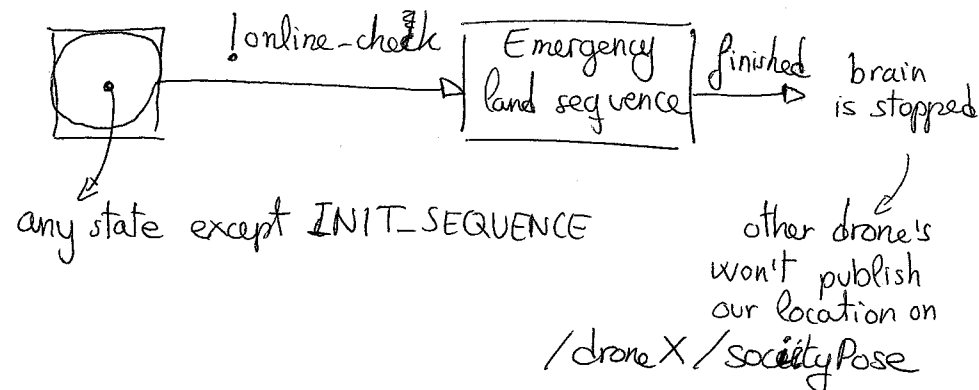 !online-check
Emergency
land sequence
finished
brain
is stopped
any state except INIT_SEQUENCE
other drone's
won't publish
our location on
/droneX/societyPose